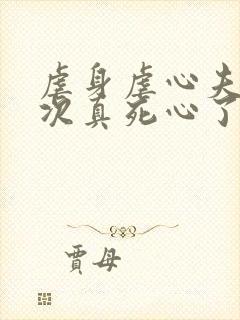 虐身虐心夫
次真死心了
贾母